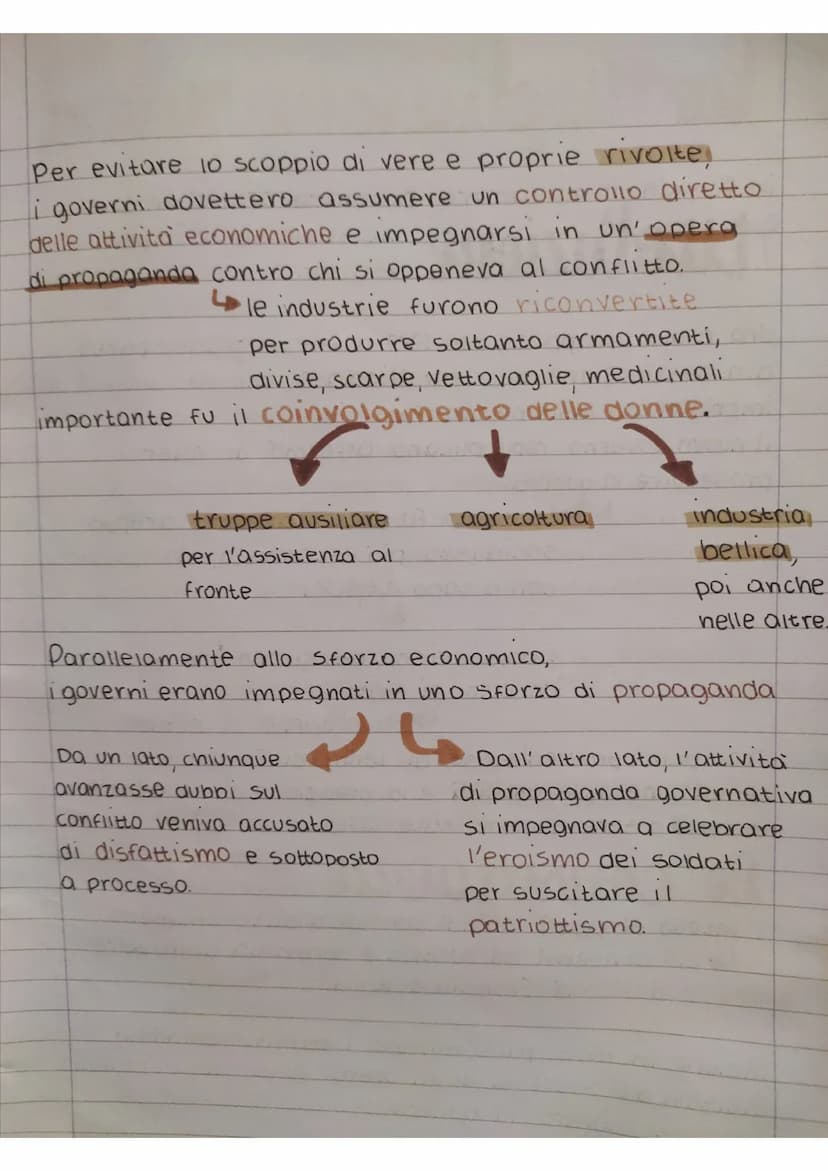 Per evitare lo scoppio di vere e proprie rivolte,
i governi dovettero assumere un controllo diretto
delle attività economiche e impegnarsi in un' opera
di propaganda contro chi si opponeva al conflitto.
le industrie furono riconvertite
per produrre soltanto armamenti,
divise, scarpe, vettovaglie, medicinali
importante fu il coinvolgimento delle donne.
truppe ausiliare
per l'assistenza al
fronte
agricoltura
industria
bellica,
poi anche
nelle altre.
Parallelamente allo sforzo economico,
i governi erano impegnati in uno sforzo di propaganda
Da un lato, chiunque
avanzasse dubbi sul
conflitto veniva accusato
di disfattismo e sottoposto
a processo.
Dall' altro lato, l'attività
di propaganda governativa
si impegnava a celebrare
l'eroismo dei soldati
per suscitare il
patriottismo.